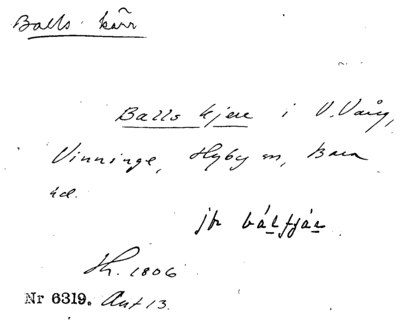 Balls kärr
Balls kjere i V. Vång,
Vinninge, Hyby sn, Bara
hd.
jfr
Sk. 1806
Nr 6319. Akt 13.